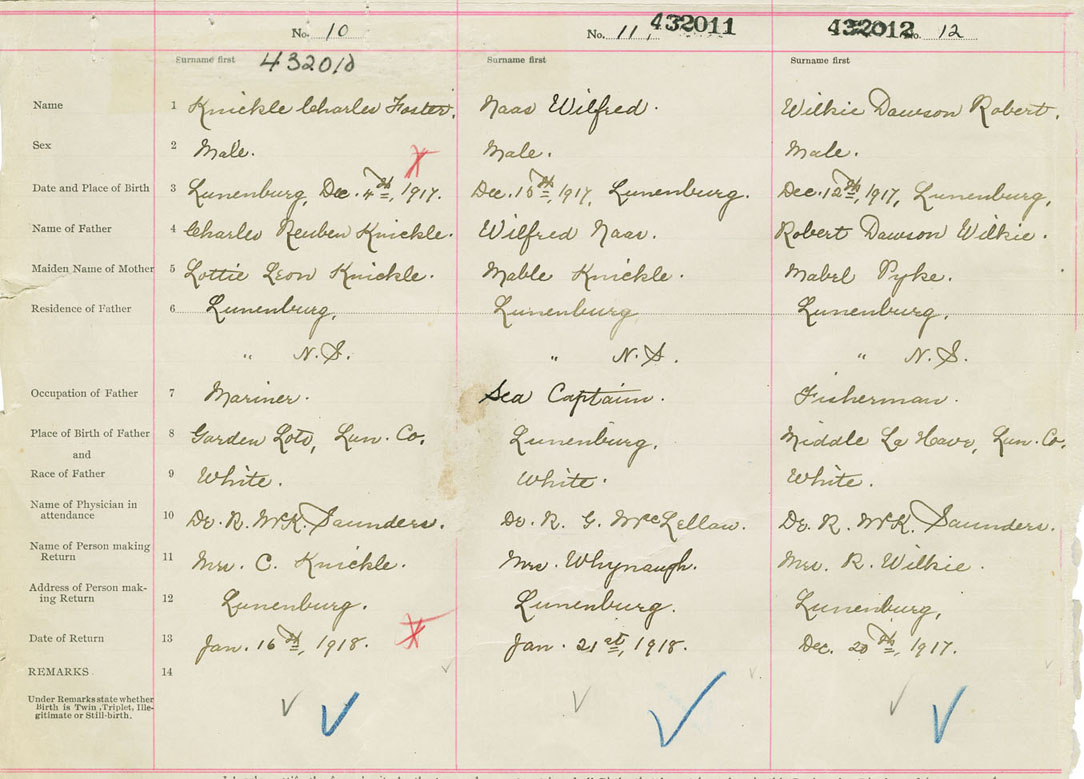 No. 10 No. 11, 432011 432012 No. 12
Surname first 432010 Surname first Surname first
Name 1 Knickle Charles Foster. Naas Wilfred. Wilkie Dawson Robert.
Sex 2 Male. Male. Male.
Date and Place of Birth 3 Lunenburg, Dec. 4th, 1917. Dec. 10th, 1917, Lunenburg. Dec. 12th, 1917, Lunenburg,
Name of Father 4 Charles Reuben Knickle. Wilfred Naas. Robert Dawson Wilkie.
Maiden Name of Mother 5 Lottie Leon Knickle. Mable Knickle. Mabel Pyke.
Residence of Father 6 Lunenburg, Lunenburg Lunenburg,
" N.S. " N.S. " N.S.
Occupation of Father 7 Mariner. Sea Captain. Fisherman.
Place of Birth of Father 8 Garden Lots, Lun. Co. Lunenburg, Middle La Have, Lun. Co.
and
Race of Father 9 White. White. White.
Name of Physician in
attendance 10 Dr. R. McK. Saunders. Dr. R. G. McLellan. Dr. R. McK. Saunders.
Name of Person making
Return 11 Mrs. C. Knickle. Mrs. Whynaugh. Mrs. R. Wilkie.
Address of Person mak-
ing Return 12 Lunenburg. Lunenburg. Lunenburg,
Date of Return 13 Jan. 16th, 1918. Jan. 21st, 1918. Dec. 20th, 1917.
REMARKS 14
Under Remarks state whether
Birth is Twin, Triplet, Ille-
gitimate or Still-birth.